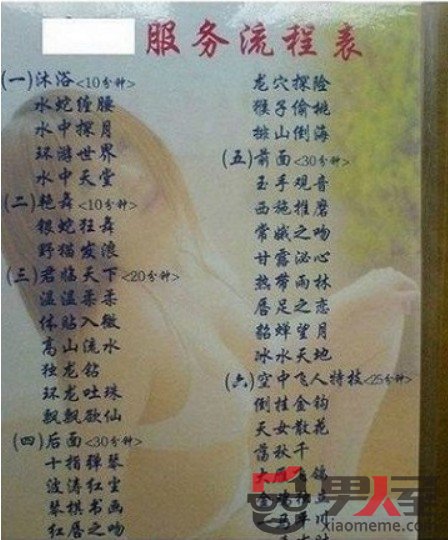 服务流程表
(一)沐浴<10分钟>
水蛇缠腰
水中探月
环游世界
水中天堂
(二)艳舞<10分钟>
银蛇狂舞
野猫发浪
(三)君临天下<20分钟>
温温柔柔
体贴入微
高山流水
独龙钻
环龙吐珠
飘飘欲仙
(四)后面<30分钟>
十指弹琴
波涛红尘
琴棋书画
红唇之吻
龙穴探险
猴子偷桃
排山倒海
(五)前面<30分钟>
玉手观音
西施推磨
常娥之吻
甘露泌心
热带雨林
唇足之恋
貂蝉望月
冰水天地
(六)空中飞人特技<25分钟>
倒挂金钩
天女散花
荡秋千
大雁飞
男人窝
xiaomeme.com